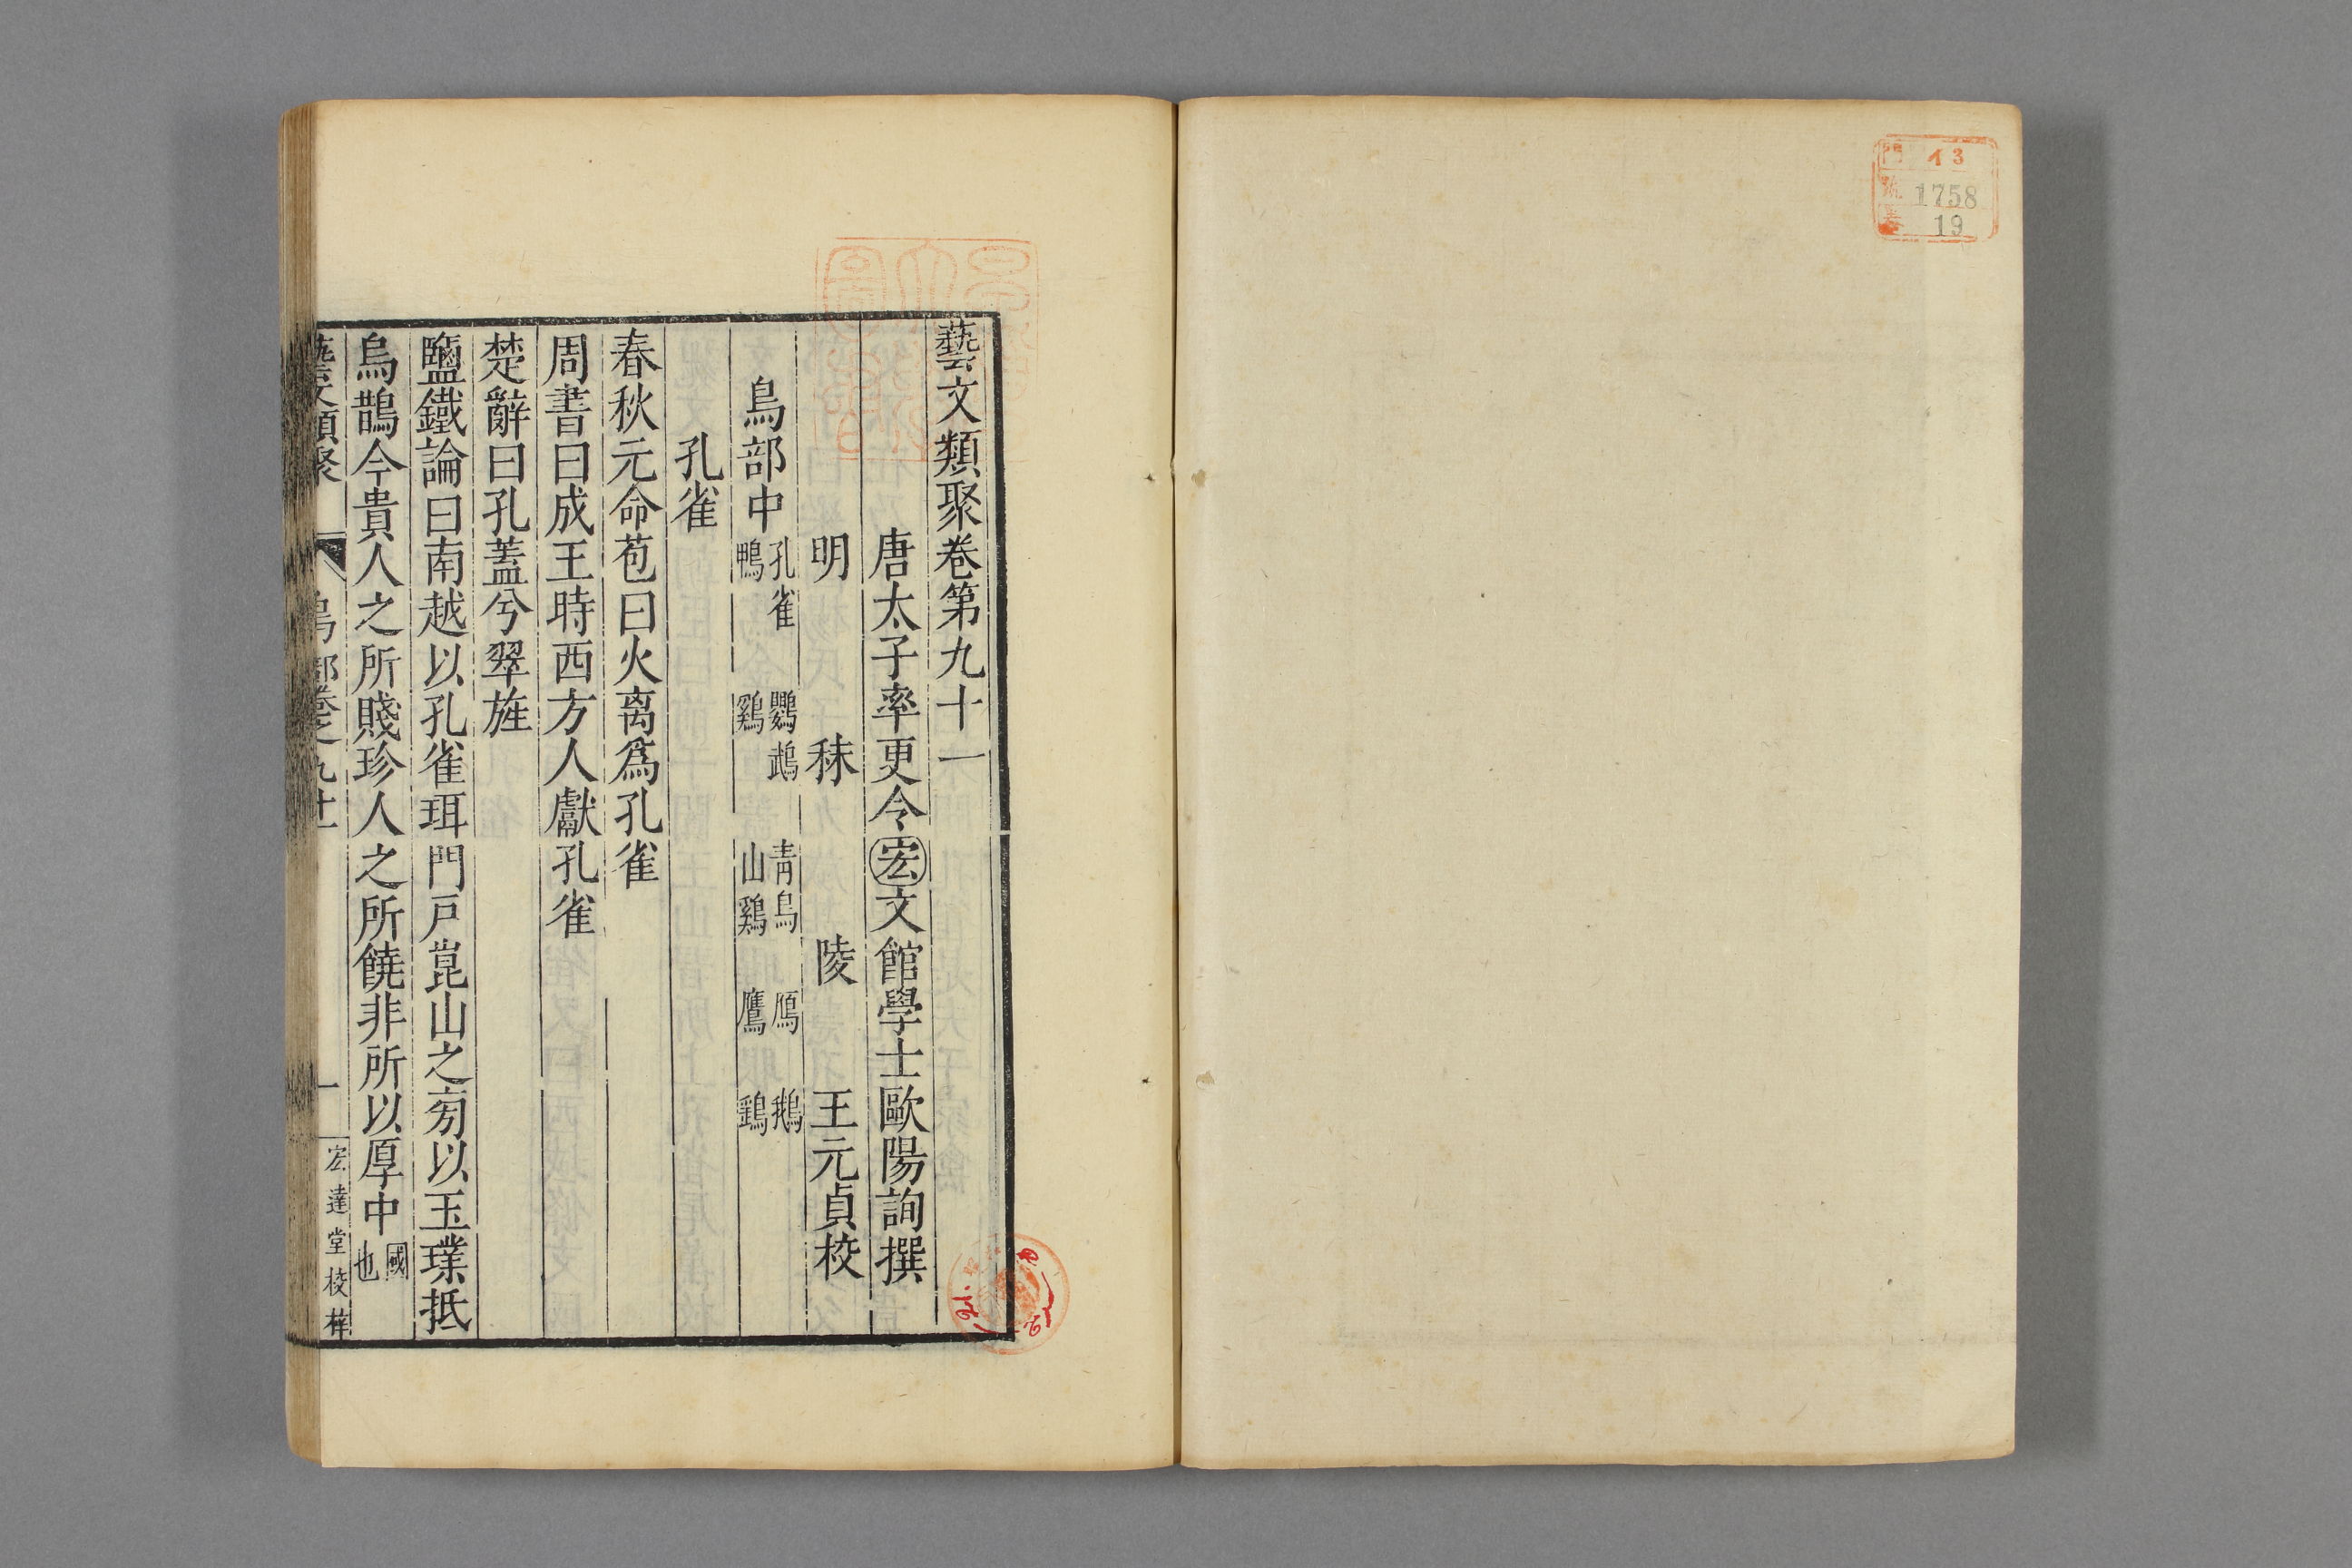 門 13
號 1758
卷 19
藝文類聚卷第九十一
唐太子率更令宏文館學士歐陽詢撰
明 秣 陵 王元貞校
鳥部中 孔雀 鸚鵡 青鳥 鴈 鵝
鴨 鷄 山鷄 鷹 鷂
孔雀
春秋元命苞曰火离爲孔雀
周書曰成王時西方人獻孔雀
楚辭曰孔蓋兮翠旌
鹽鐵論曰南越以孔雀珥門戸崑山之旁以玉璞抵
烏鵲今貴人之所賤珍人之所饒非所以厚中國也
藝文類聚 鳥部卷之九十一 一 宏達堂校梓